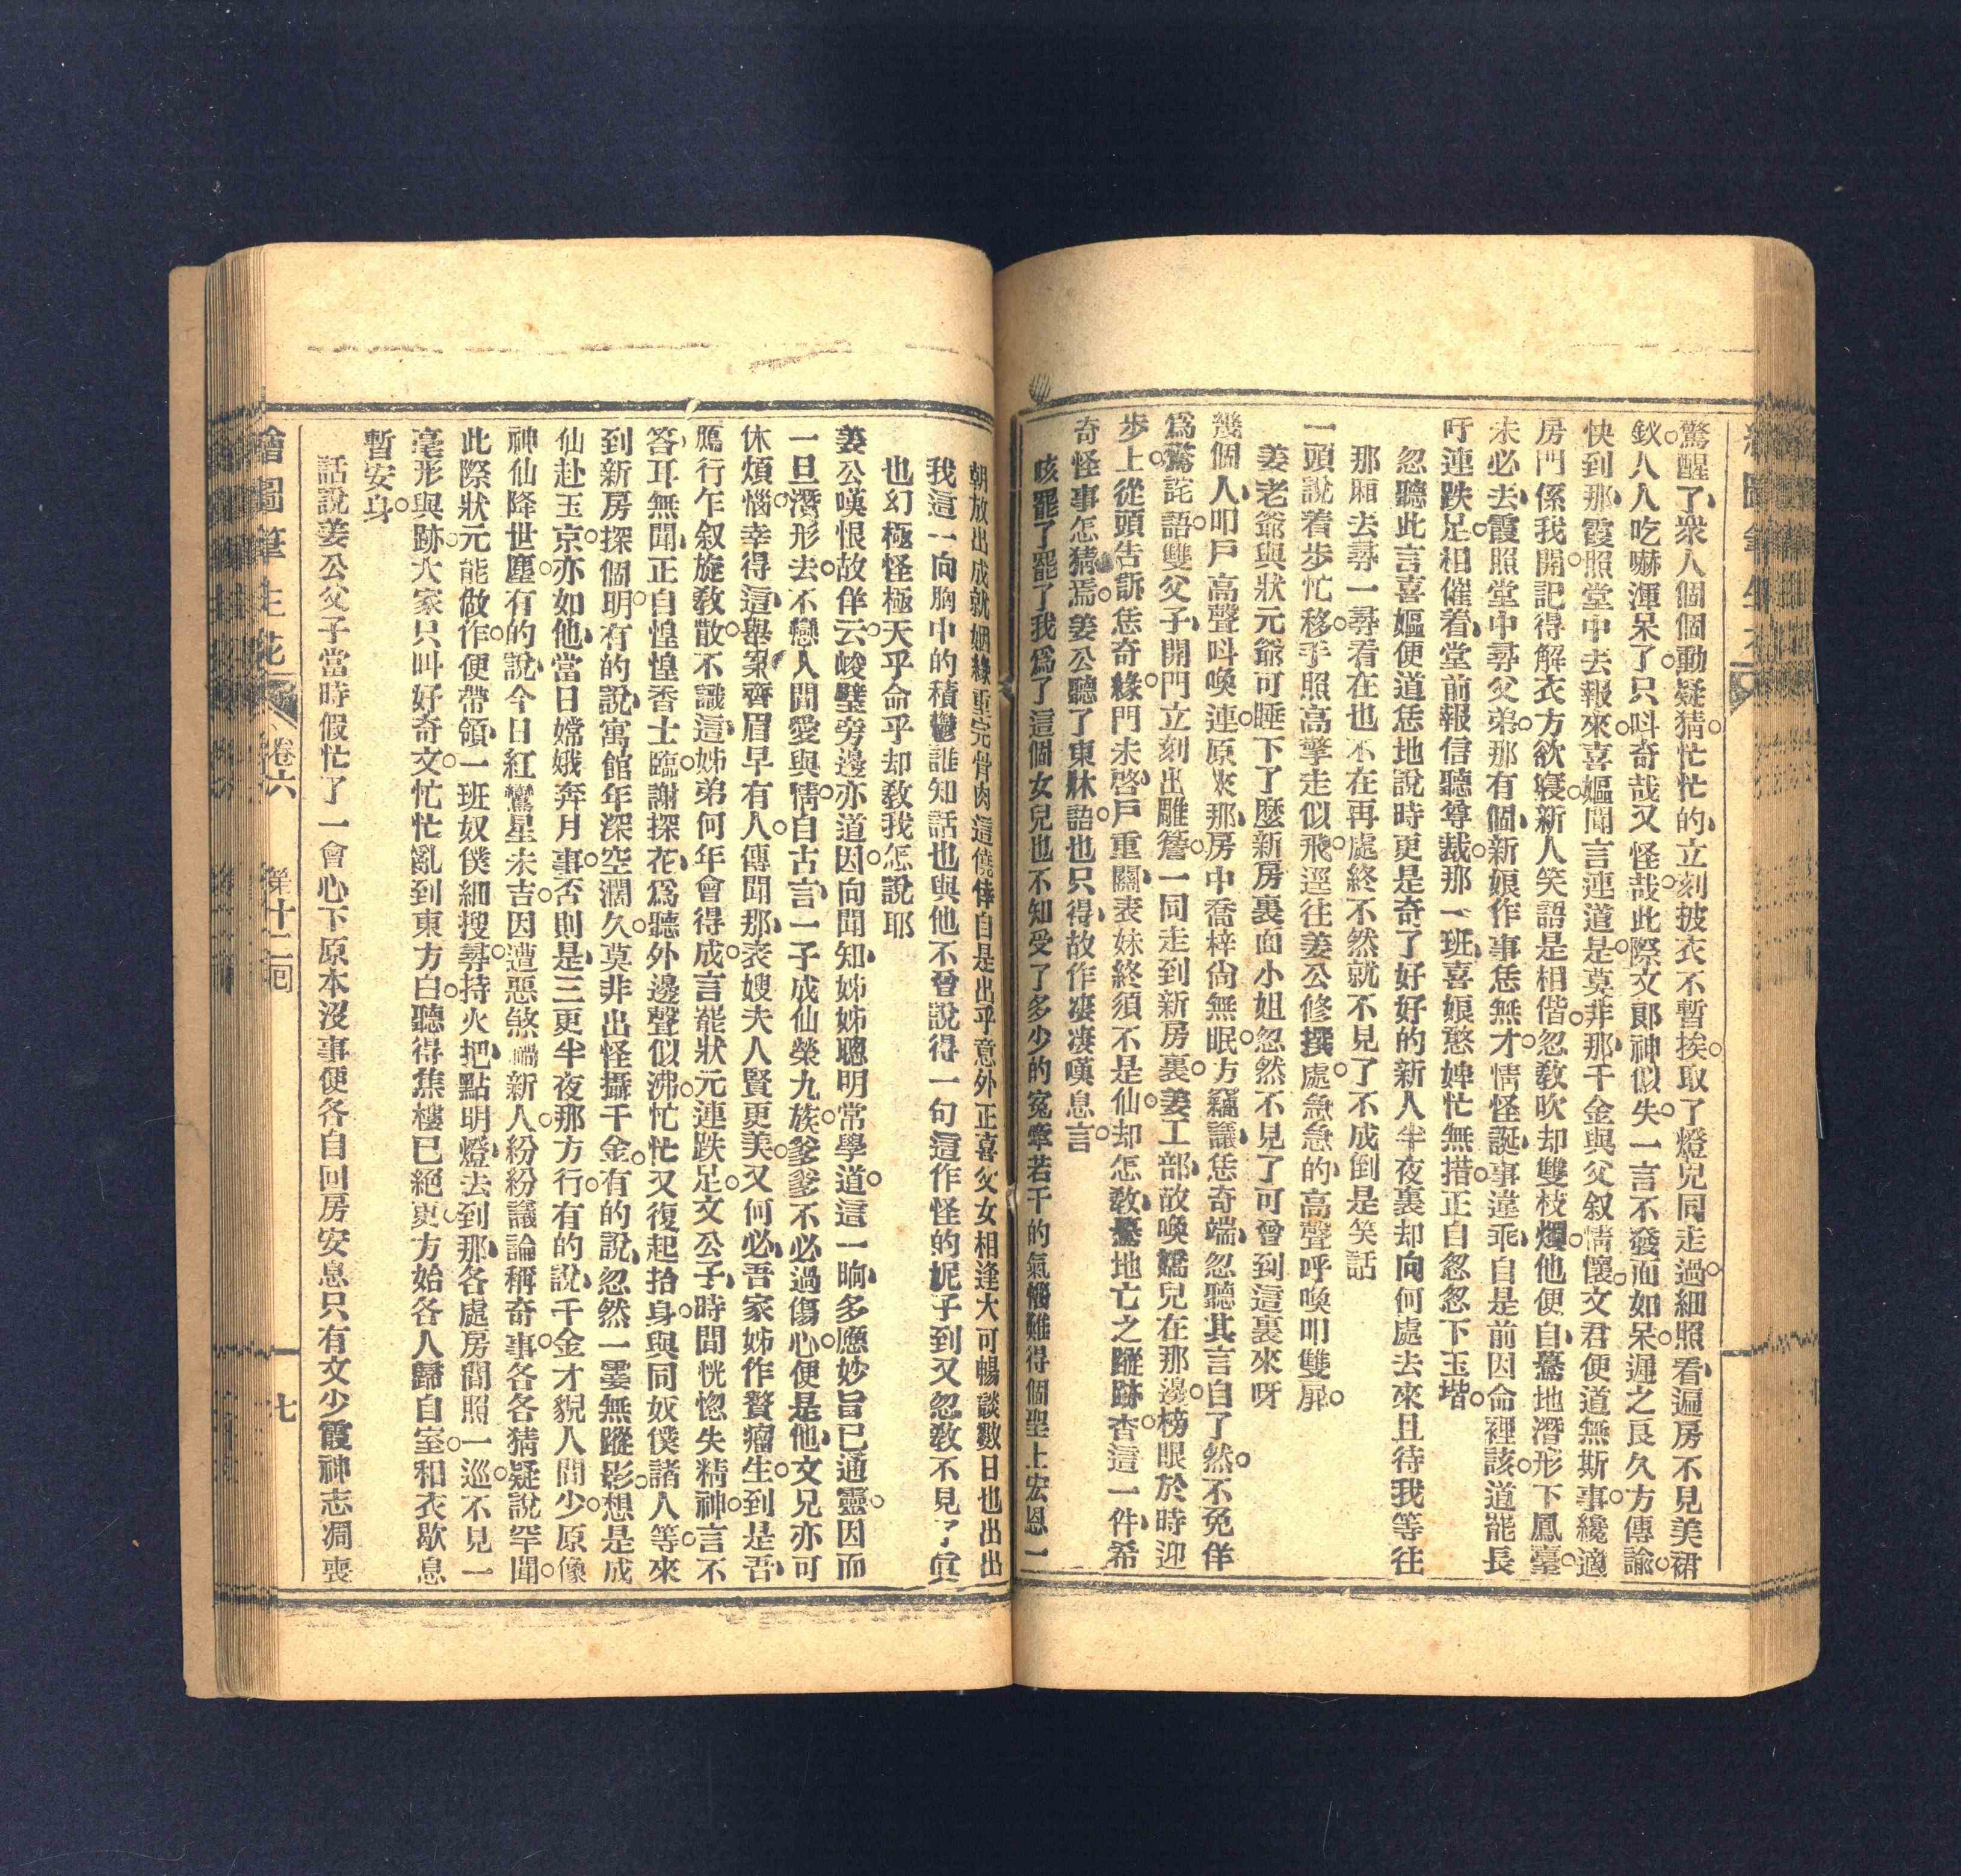 驚醒了衆人個個動疑猜忙忙的立刻披衣不暫挨取了燈兒同走過細照看遍房不見美裙
釵人人吃嚇渾呆了只呌奇哉又怪哉此際文郞神似失一言不發面如呆遲之良久方傳諭
快到那霞照堂中去報來喜嫗聞言連道是莫非那千金與父叙情懷文君便道無斯事纔適
房門係我開記得解衣方欲寢新人笑語是相偕忽教吹却雙枝燭他便自驀地潛形下鳳臺
未必去霞照堂中尋父弟那有個新娘作事恁無才情怪誕事違乖自是前因命裡該道罷長
吁連跌足相催着堂前報信聽尊裁那一班喜娘憨婢忙無措正自忽忽下玉堦
忽聽此言喜嫗便道恁地說時更是奇了好好的新人半夜裏却向何處去來且待我等往
那厢去尋一尋看在也不在再處終不然就不見了不成倒是笑話
一頭說着步忙移手照高擎走似飛逕往姜公修撰處急急的高聲呼喚叩雙扉
姜老爺與狀元爺可睡下了麼新房裏面小姐忽然不見了可曾到這裏來呀
幾個人叩戶高聲呌喚連原來那房中喬梓尙無眠方竊議恁奇端忽聽其言自了然不免佯
爲驚詫語雙父子開門立刻出雕簷一同走到新房裏姜工部故喚嬌兒在那邊榜眼於時迎
步上從頭告訴恁奇緣門未啓戶重關表妹終須不是仙却怎教驀地亡之蹤跡杳這一件希
奇怪事怎猜焉姜公聽了東牀語也只得故作凄凄嘆息言
咳罷了罷了我爲了這個女兒也不知受了多少的寃牽若干的氣惱難得個聖上宏恩一
朝放出成就姻緣重完骨肉這僥倖自是出乎意外正喜父女相逢大可暢談數日也出出
我這一向胸中的積鬱誰知話也與他不曾說得一句這作怪的妮子到又忽教不見了眞
也幻極怪極天乎命乎却教我怎說耶
姜公嘆恨故佯云峻璧旁邊亦道因向聞知姊姊聰明常學道這一晌多應妙旨已通靈因而
一旦潛形去不戀人間愛與情自古言一子成仙榮九族爹爹不必過傷心便是他文兄亦可
休煩惱幸得這舉案齊眉早有人傳聞那表嫂夫人賢更美又何必吾家姊作贅瘤生到是吾
鴈行乍叙旋教散不識這姊弟何年會得成言罷狀元連跌足文公子時間恍惚失精神言不
答耳無聞正自惶惶香士臨謝探花爲聽外邊聲似沸忙忙又復起抬身與同奴僕諸人等來
到新房探個明有的說寓館年深空濶久莫非出怪攝千金有的說忽然一霎無蹤影想是成
仙赴玉京亦如他當日嫦娥奔月事否則是三更半夜那方行有的說千金才貌人間少原像
神仙降世塵有的說今日紅鸞星未吉因遭惡煞新人紛紛議論稱奇事各各猜疑說罕聞
此際狀元能做作便帶領一班奴僕細搜尋持火把點明燈去到那各處房間照一巡不見一
毫形與跡大家只叫好奇文忙忙亂到東方白聽得焦樓已絕更方始各人歸自室和衣歇息
暫安身
話說姜公父子當時假忙了一會心下原本沒事便各自回房安息只有文少霞神志凋喪
繪圖筆生花 卷六 第十二回 七